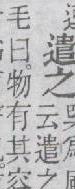 遣之
吳爲
云遣之
毛曰物有其容